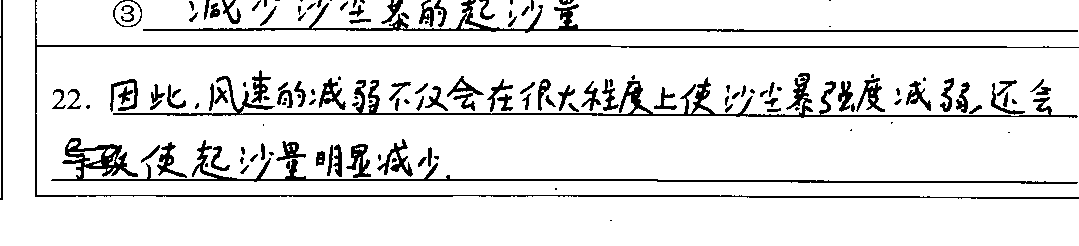 ③ 减少沙尘暴的起沙量
22. 因此,风速的减弱不仅会在很大程度上使沙尘暴强度减弱,还会
使起沙量明显减少.